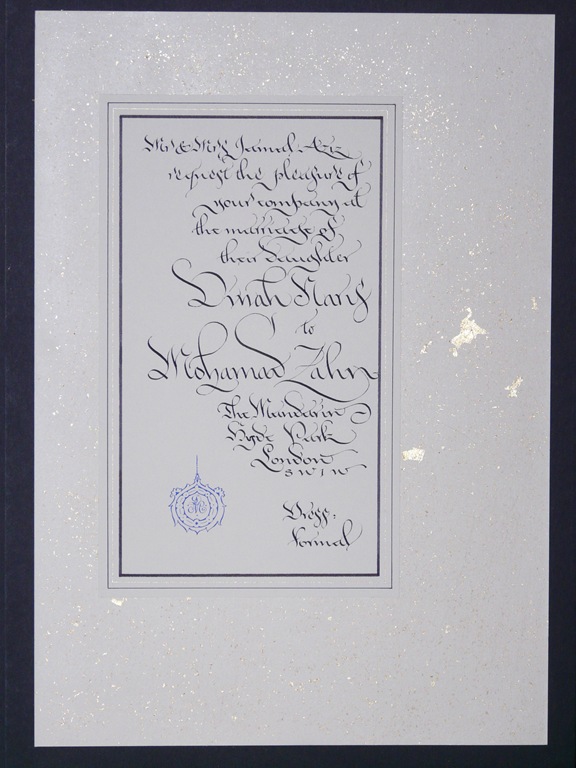 Mr & Mrs Jamal Aziz
request the pleasure of
your company at
the marriage of
their daughter
Dinah
to
Mohamad
The Mandarin
Hyde Park
London
SW1W
Dress.
Formal